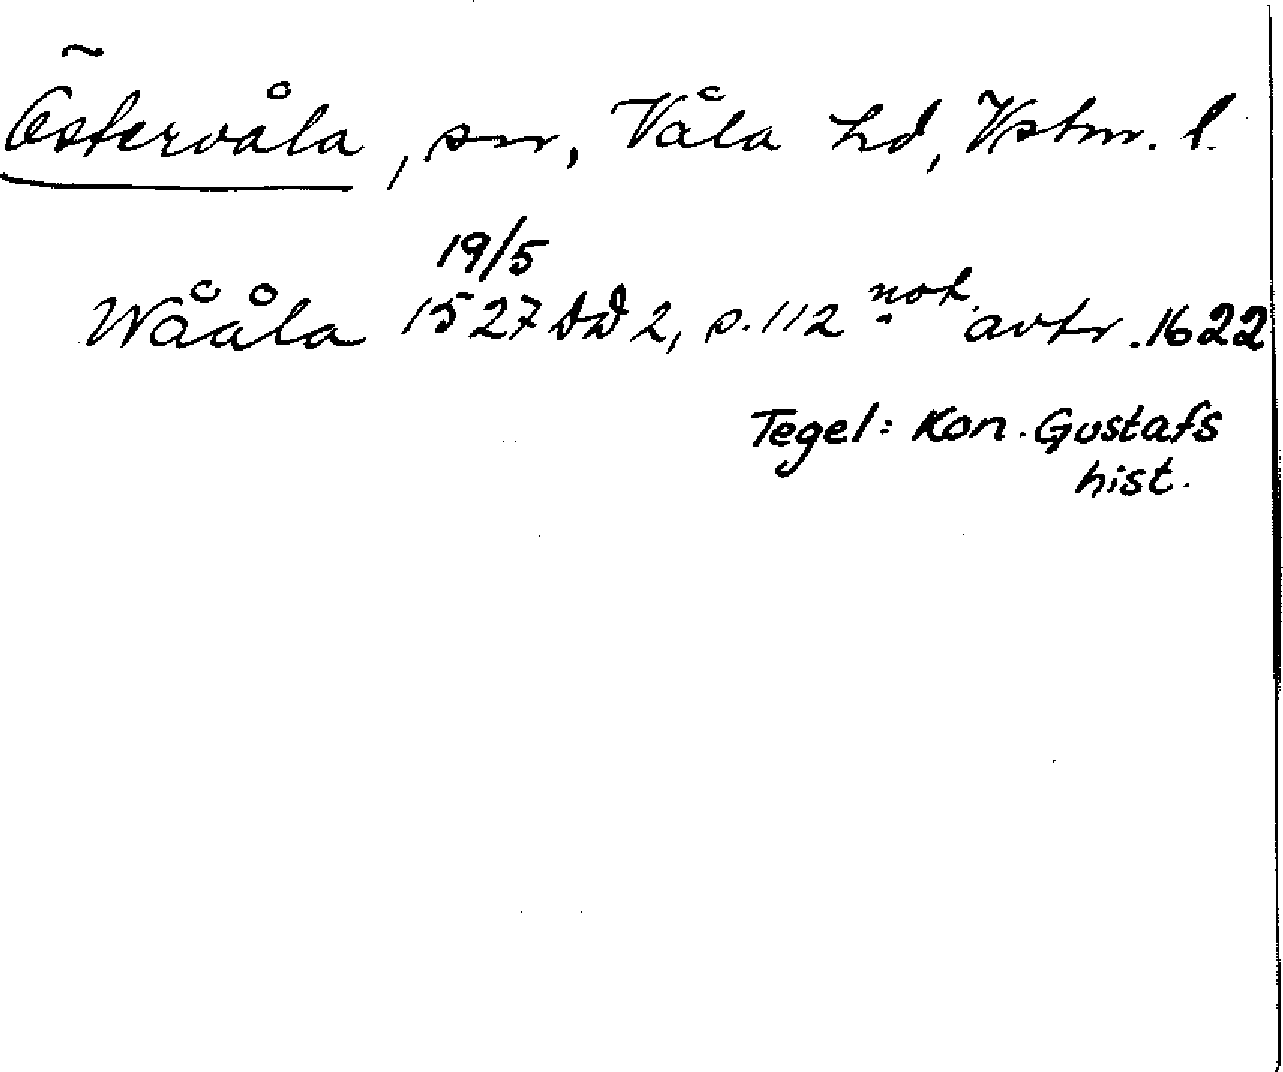 Östervåla, sn, Våla hd, Vstm. l.
19/5
Wååla 1527 DD 2, s. 112 not avtr. 1622
Tegel: Kon. Gustafs
hist.